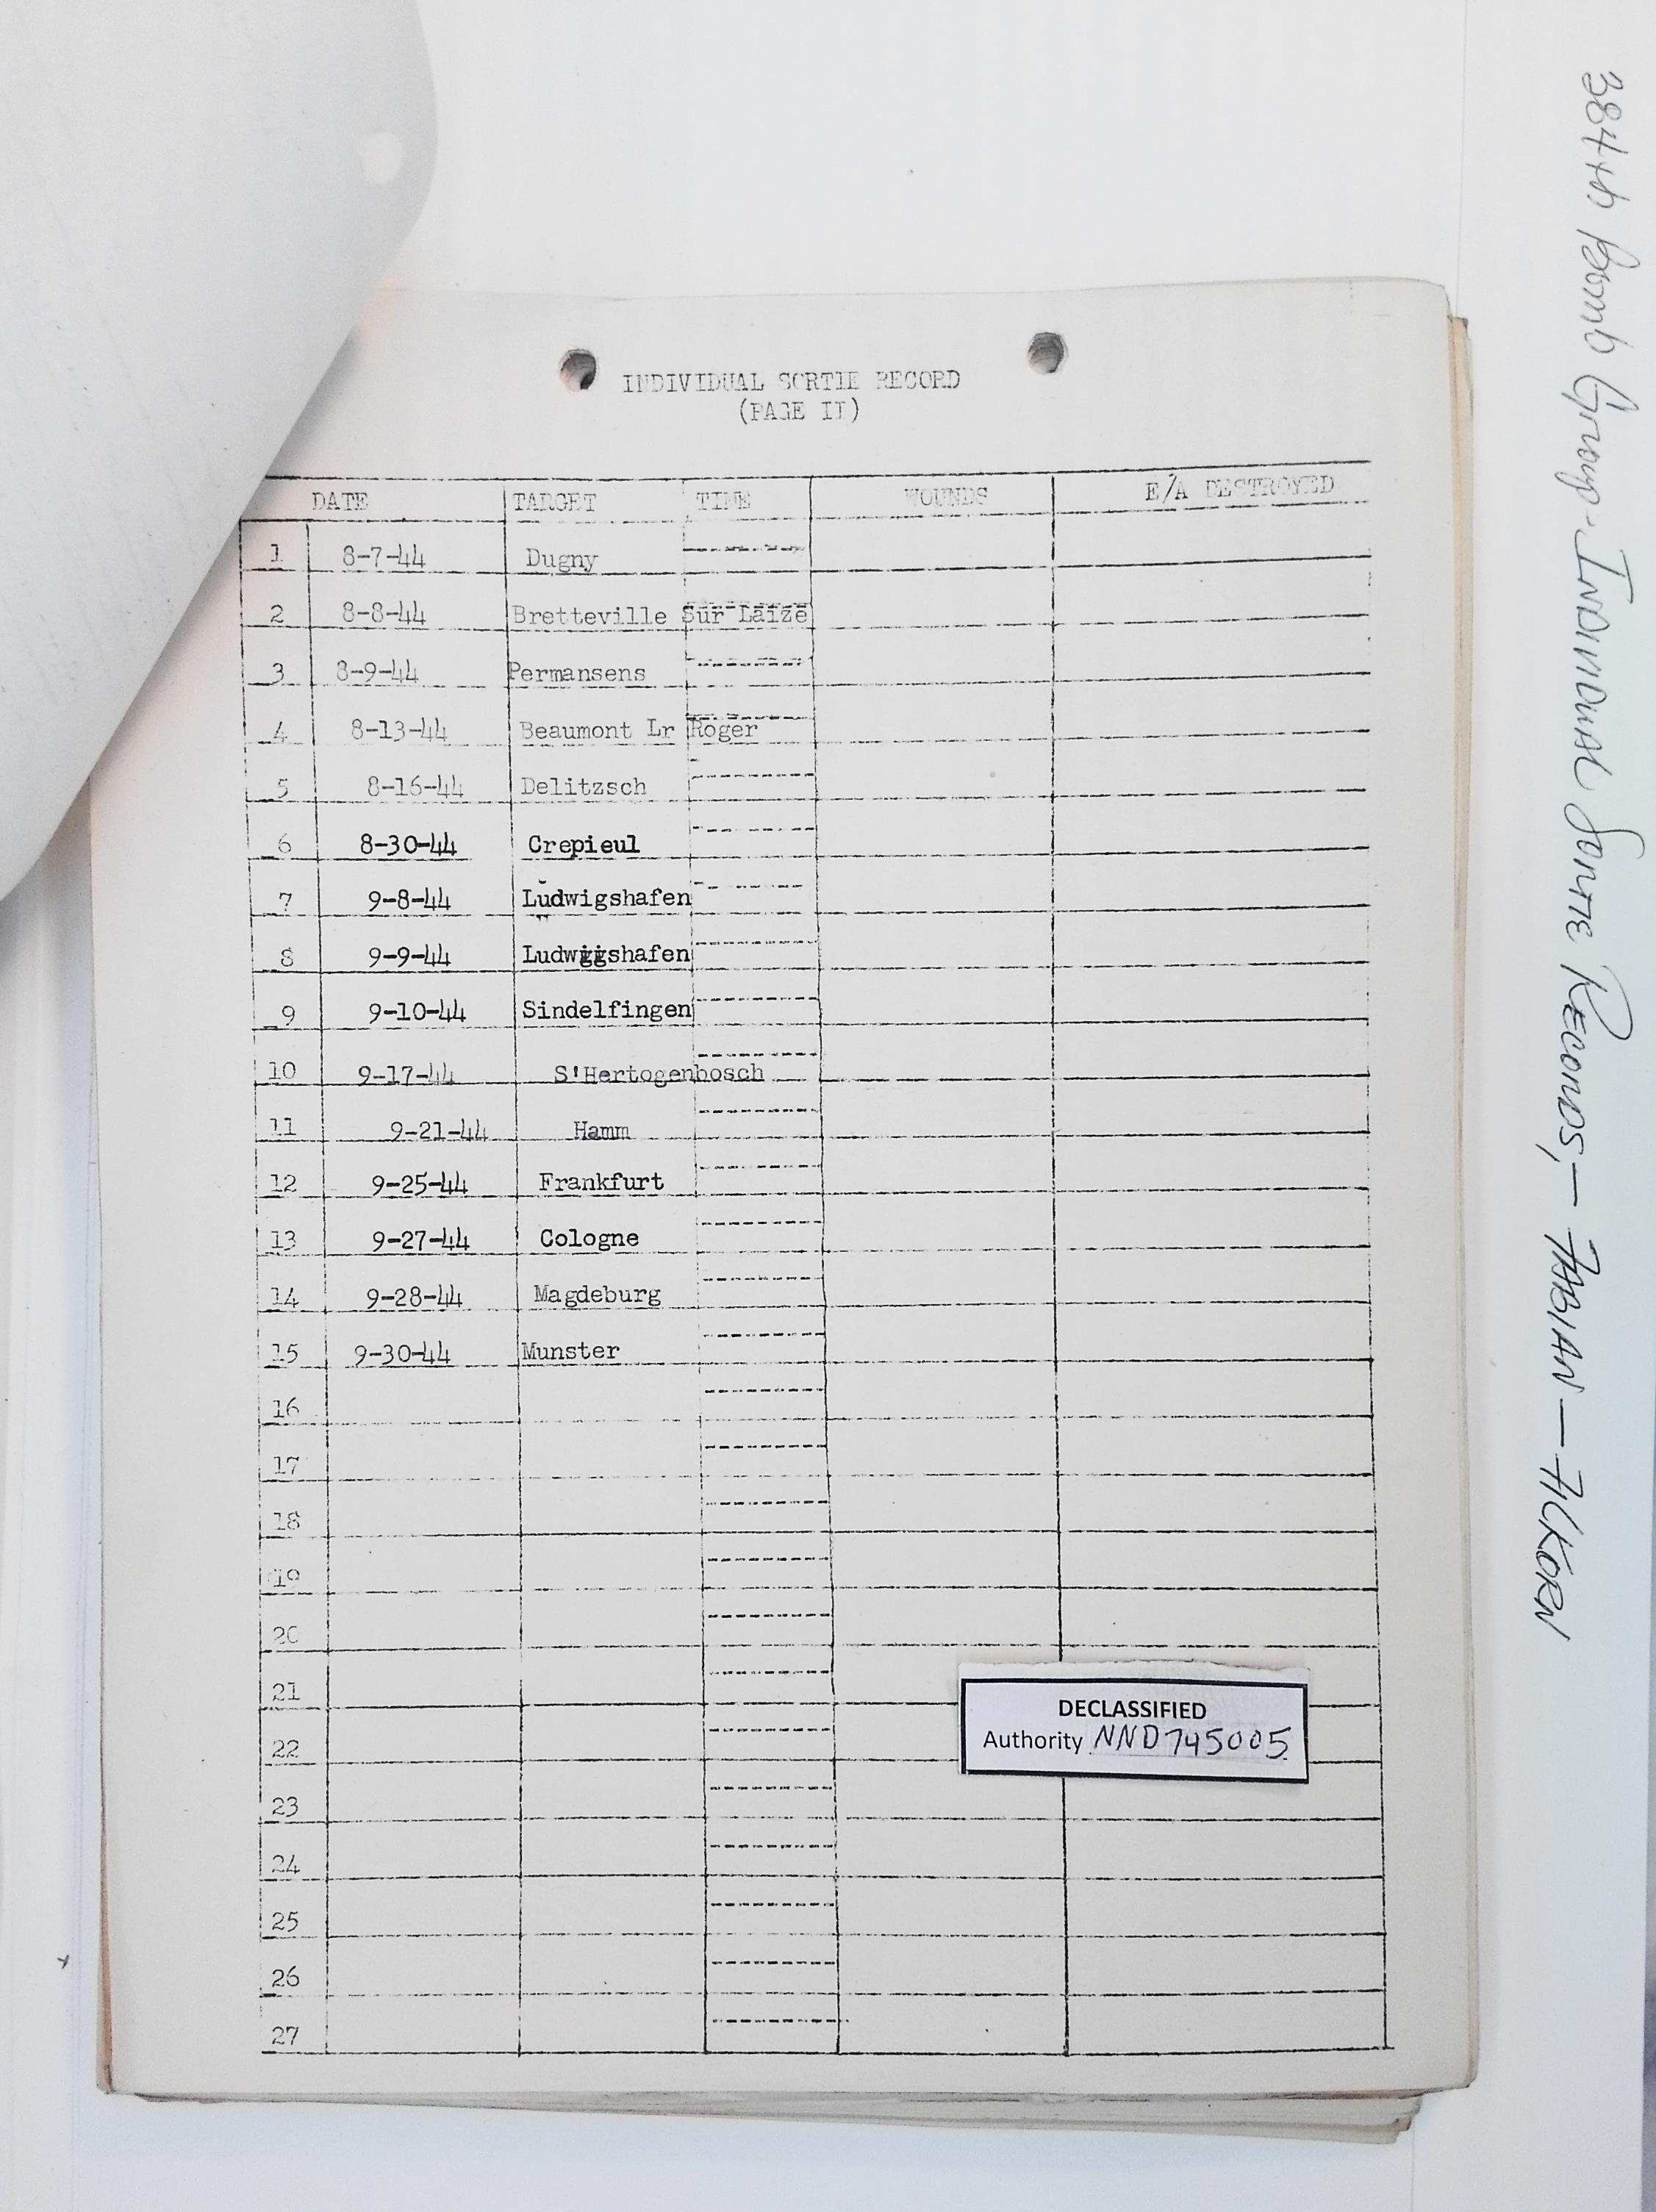 INDIVIDUAL SORTIE RECORD
(PAGE II)
DATE TARGET TIME WOUNDS E/A DESTROYED
1 8-7-44 Dugny
2 8-8-44 Bretteville Sur Laize
3 8-9-44 Permansens
4 8-13-44 Beaumont Lr Roger
5 8-16-44 Delitzsch
6 8-30-44 Crepieul
7 9-8-44 Ludwigshafen
8 9-9-44 Ludwigshafen
9 9-10-44 Sindelfingen
10 9-17-44 S'Hertogenbosch
11 9-21-44 Hamm
12 9-25-44 Frankfurt
13 9-27-44 Cologne
14 9-28-44 Magdeburg
15 9-30-44 Munster
16
17
18
19
20
21
22
23
24
25
26
27
DECLASSIFIED
Authority NND745005
384th Bomb Group - Individual Sortie Records, - FABIAN - FICKORN